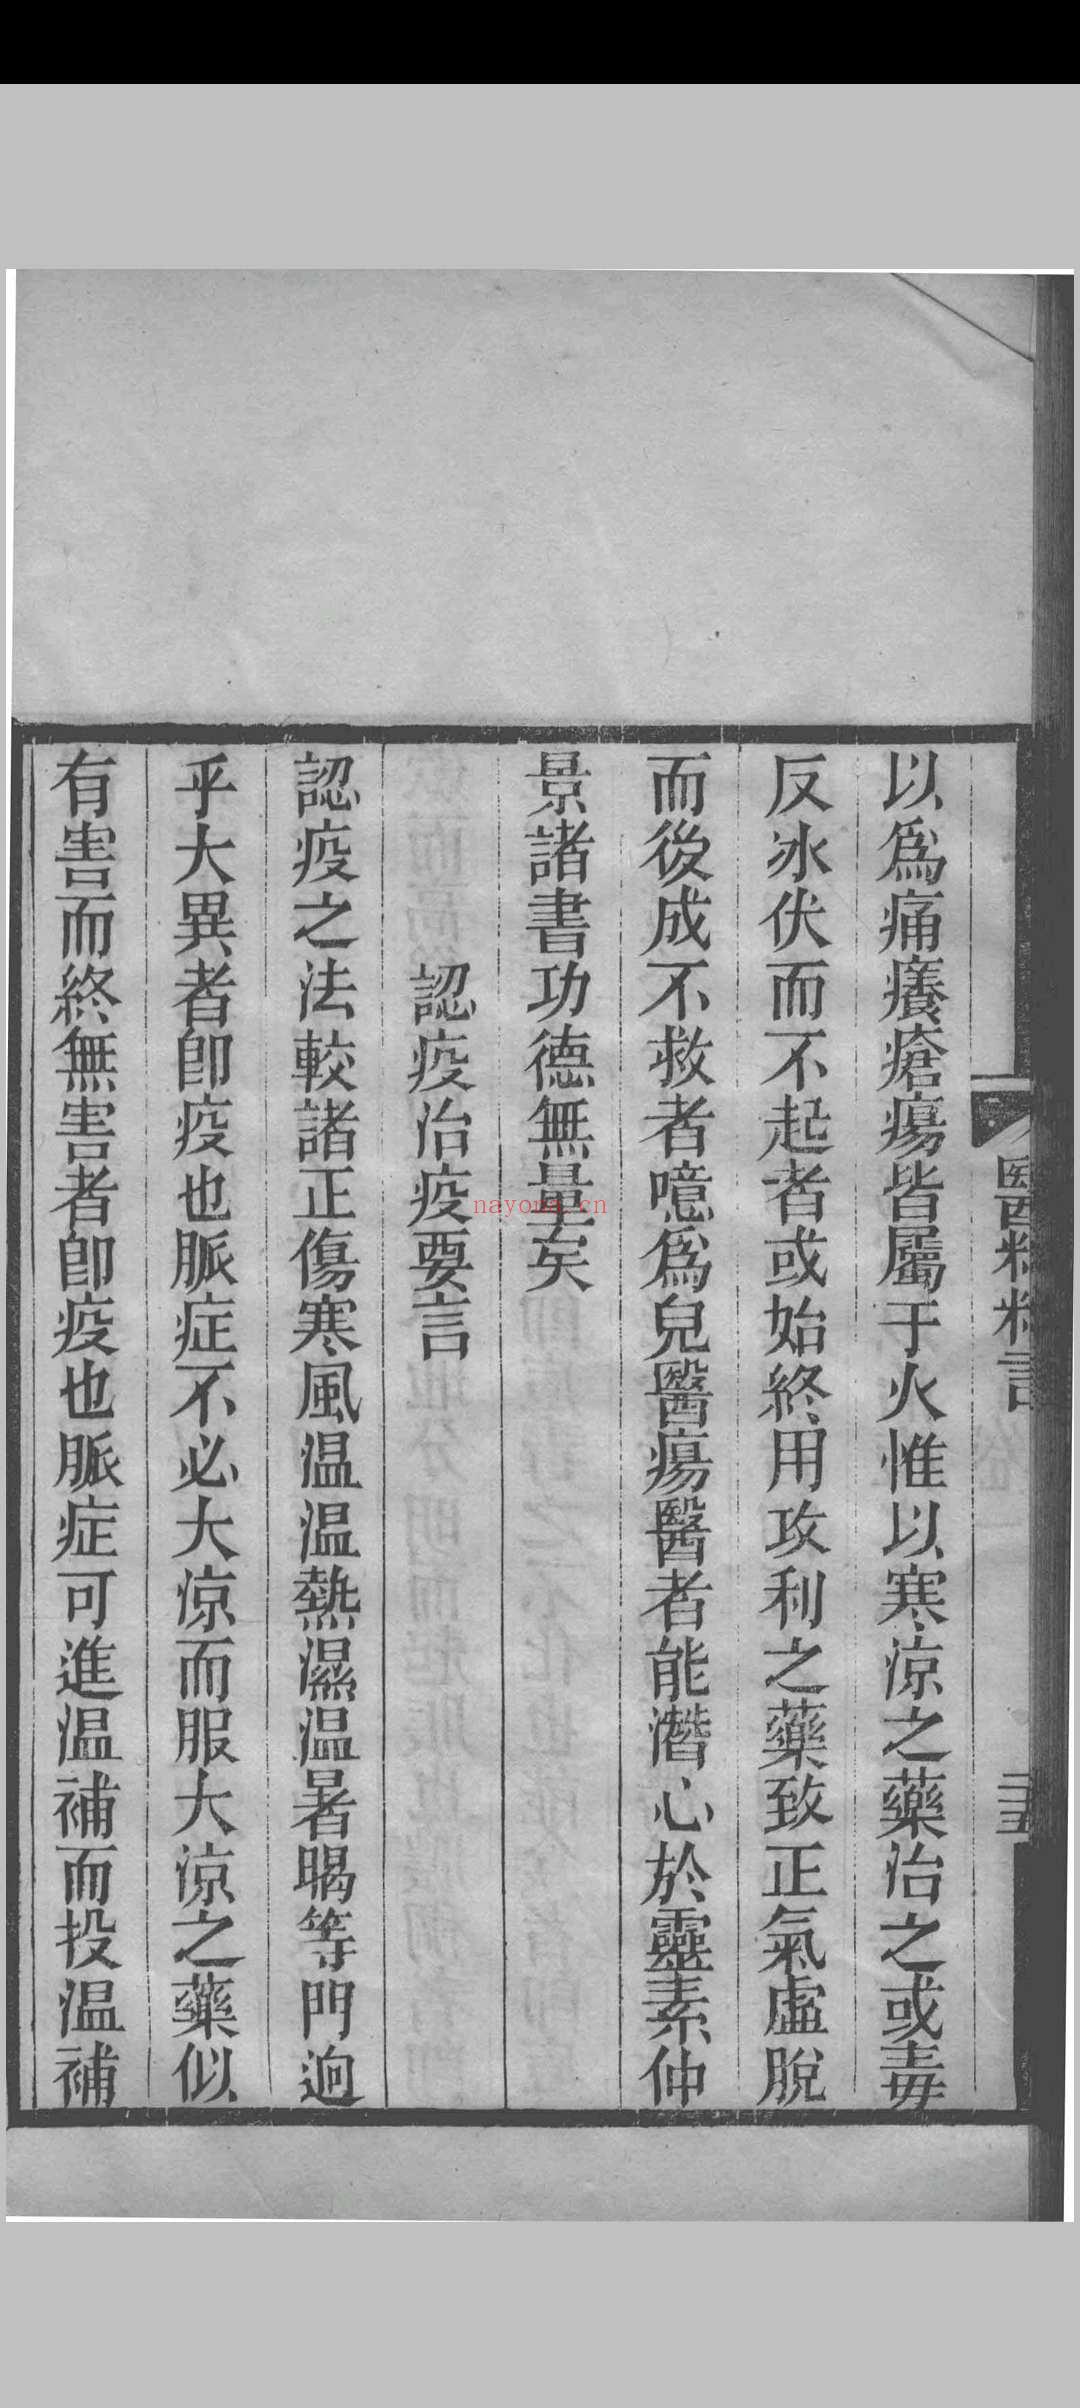 醫粹精言
二十五
以爲痛癢瘡瘍皆屬于火惟以寒涼之藥治之或毒
反冰伏而不起者或始終用攻利之藥致正氣虛脫
而後成不救者噫爲兒醫瘍醫者能潛心於靈素仲
景諸書功德無量矣
認疫治疫要言
認疫之法較諸正傷寒風温温熱濕温暑暍等門逈
乎大異者卽疫也脈症不必大涼而服大涼之藥似
有害而終無害者卽疫也脈症可進温補而投温補
nayona.cn